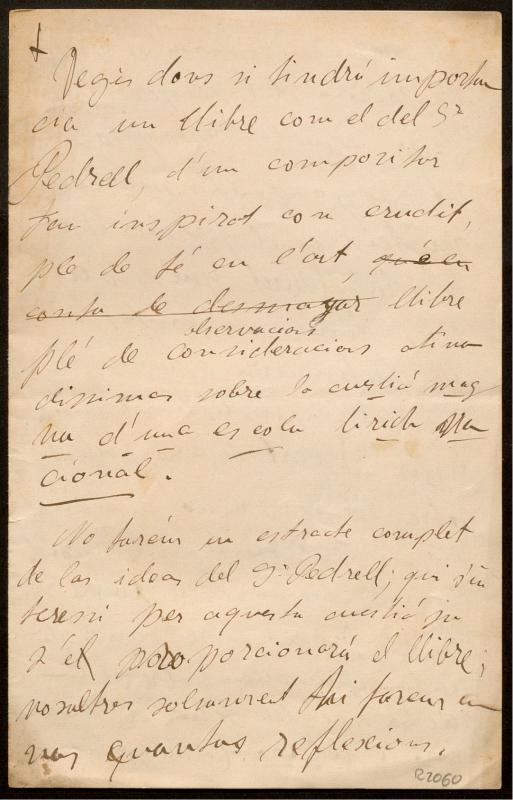 Vegis dons si tindrá importan
cia un llibre com el del Sr
Pedrell, d'un compositor
tan inspirat com erudit,
ple de fé en l'art, que en
costa le desmayar llibre
observacions
plé de consideracions atina
dissimas sobre la cuestió mag
na d'una escola lirich na
cional.
No farém un estracte complet
de las ideas del Sr Pedrell; qui s'in
teressi per aquesta cuestió ja
s'el proporcionará el llibre;
nosaltres solsament hi farem u
nas quantas reflexions.
R2060